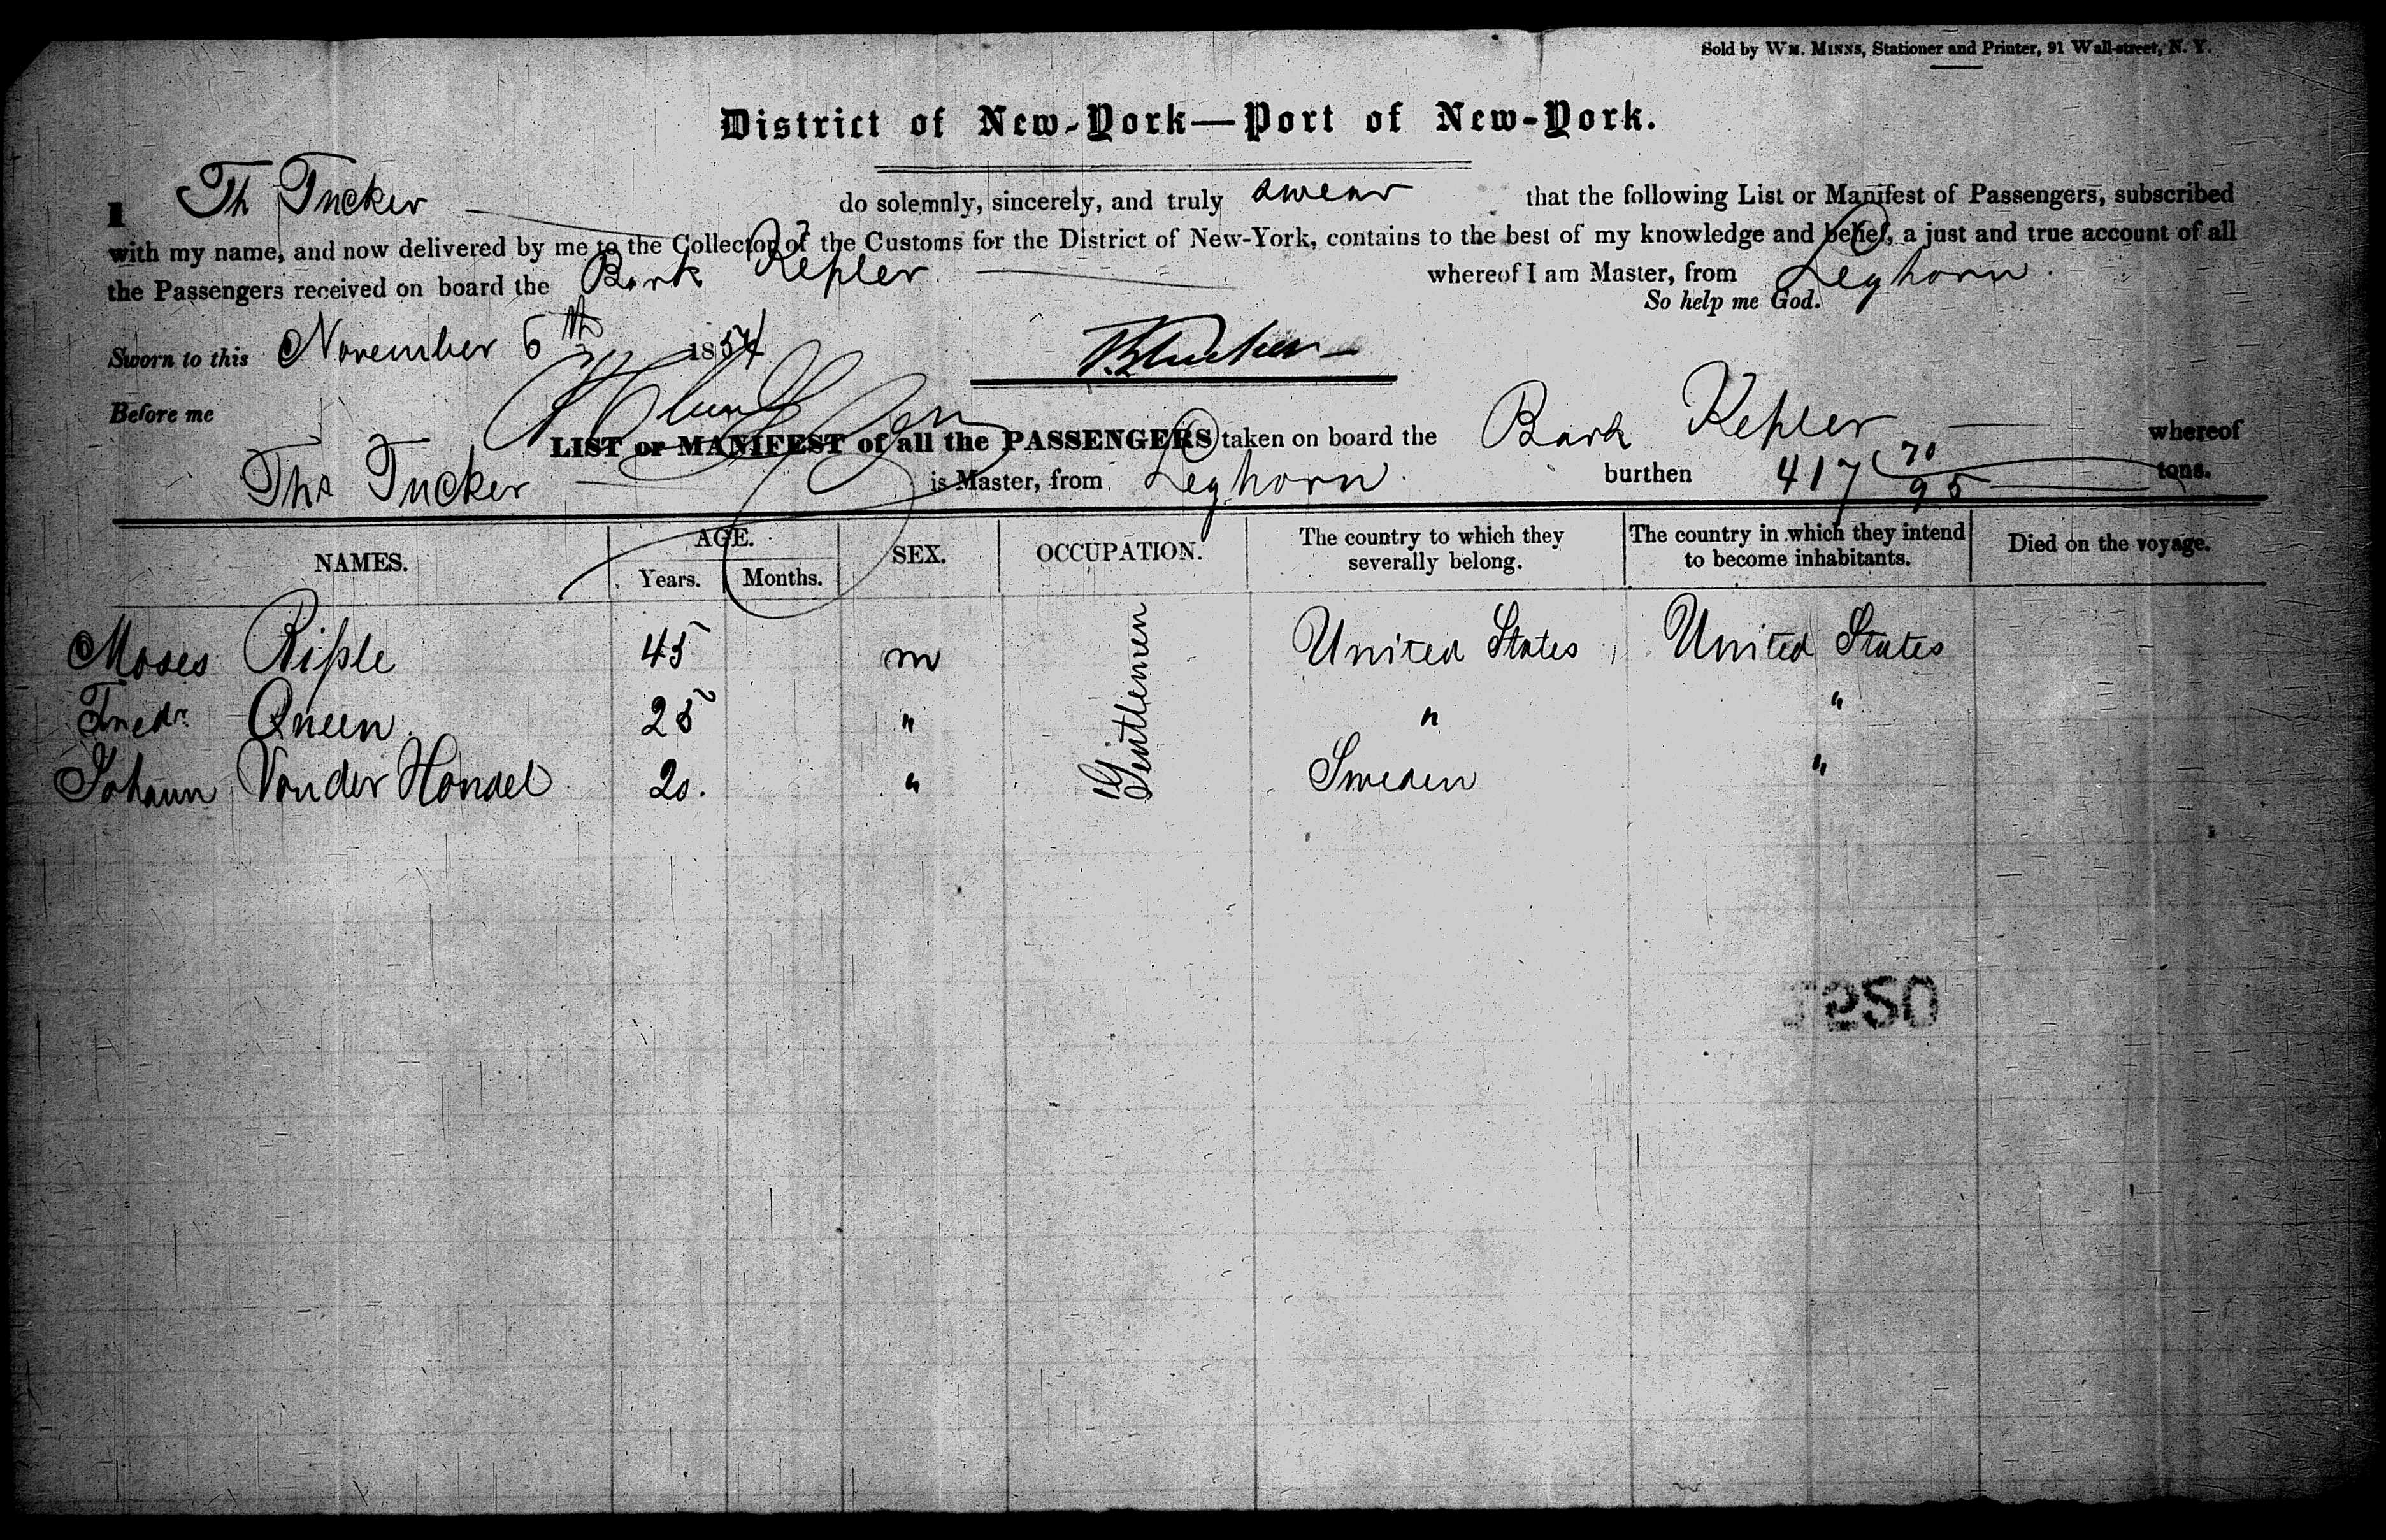 Sold by WM. MINNS, Stationer and Printer, 91 Wall-street, N. Y.
District of New-York—Port of New-York.
I Th Tucker do solemnly, sincerely, and truly swear that the following List or Manifest of Passengers, subscribed
with my name, and now delivered by me to the Collector of the Customs for the District of New-York, contains to the best of my knowledge and belief, a just and true account of all
the Passengers received on board the Bark Kepler whereof I am Master, from Leghorn.
So help me God.
Sworn to this November 6th 1854
Before me
LIST or MANIFEST of all the PASSENGERS taken on board the Bark Kepler whereof
Ths Tucker is Master, from Leghorn. burthen 417 70/95 tons.
NAMES. AGE. SEX. OCCUPATION. The country to which they severally belong. The country in which they intend to become inhabitants. Died on the voyage.
Years. Months.
Moses Risple 45 m Gentlemen United States United States
Fredr. Queen. 25 " " "
Johann Vonder Hondel 20. " Sweden "
1250